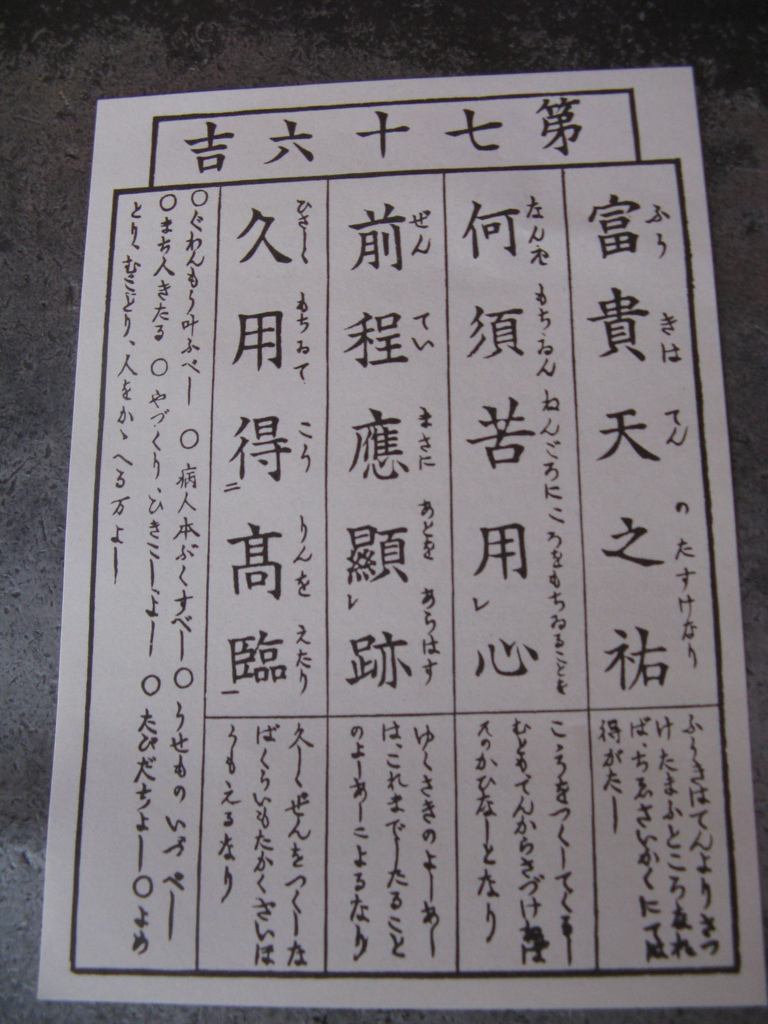 第七十六吉
富貴天之祐
ふうきはてんのたすけなり
何須苦用レ心
なんぞもちゐんねんごろにこころをもちゐることを
前程應顯レ跡
ぜんていまさにあとをあらはす
久用得二高臨一
ひさしくもちゐてこうりんをえたり
ふうきはてんよりさづ
けたまふところなれ
ば、ちゑさいかくにては
得がたし
こころをつくしてくるし
むともてんからさづけねば
そのかひなしとなり
ゆくさきのよしあし
は、これまでしたること
のよしあしによるなり
久しくぜんをつくしな
ばくらいもたかくさいは
うもえるなり
〇ぐわんもう叶ふべし 〇病人本ぶくすべし〇うせものいづべし
〇まち人きたる 〇やづくり、ひきこしよし 〇たびだちよし〇よめ
とり、むこどり、人をかゝへる万よし